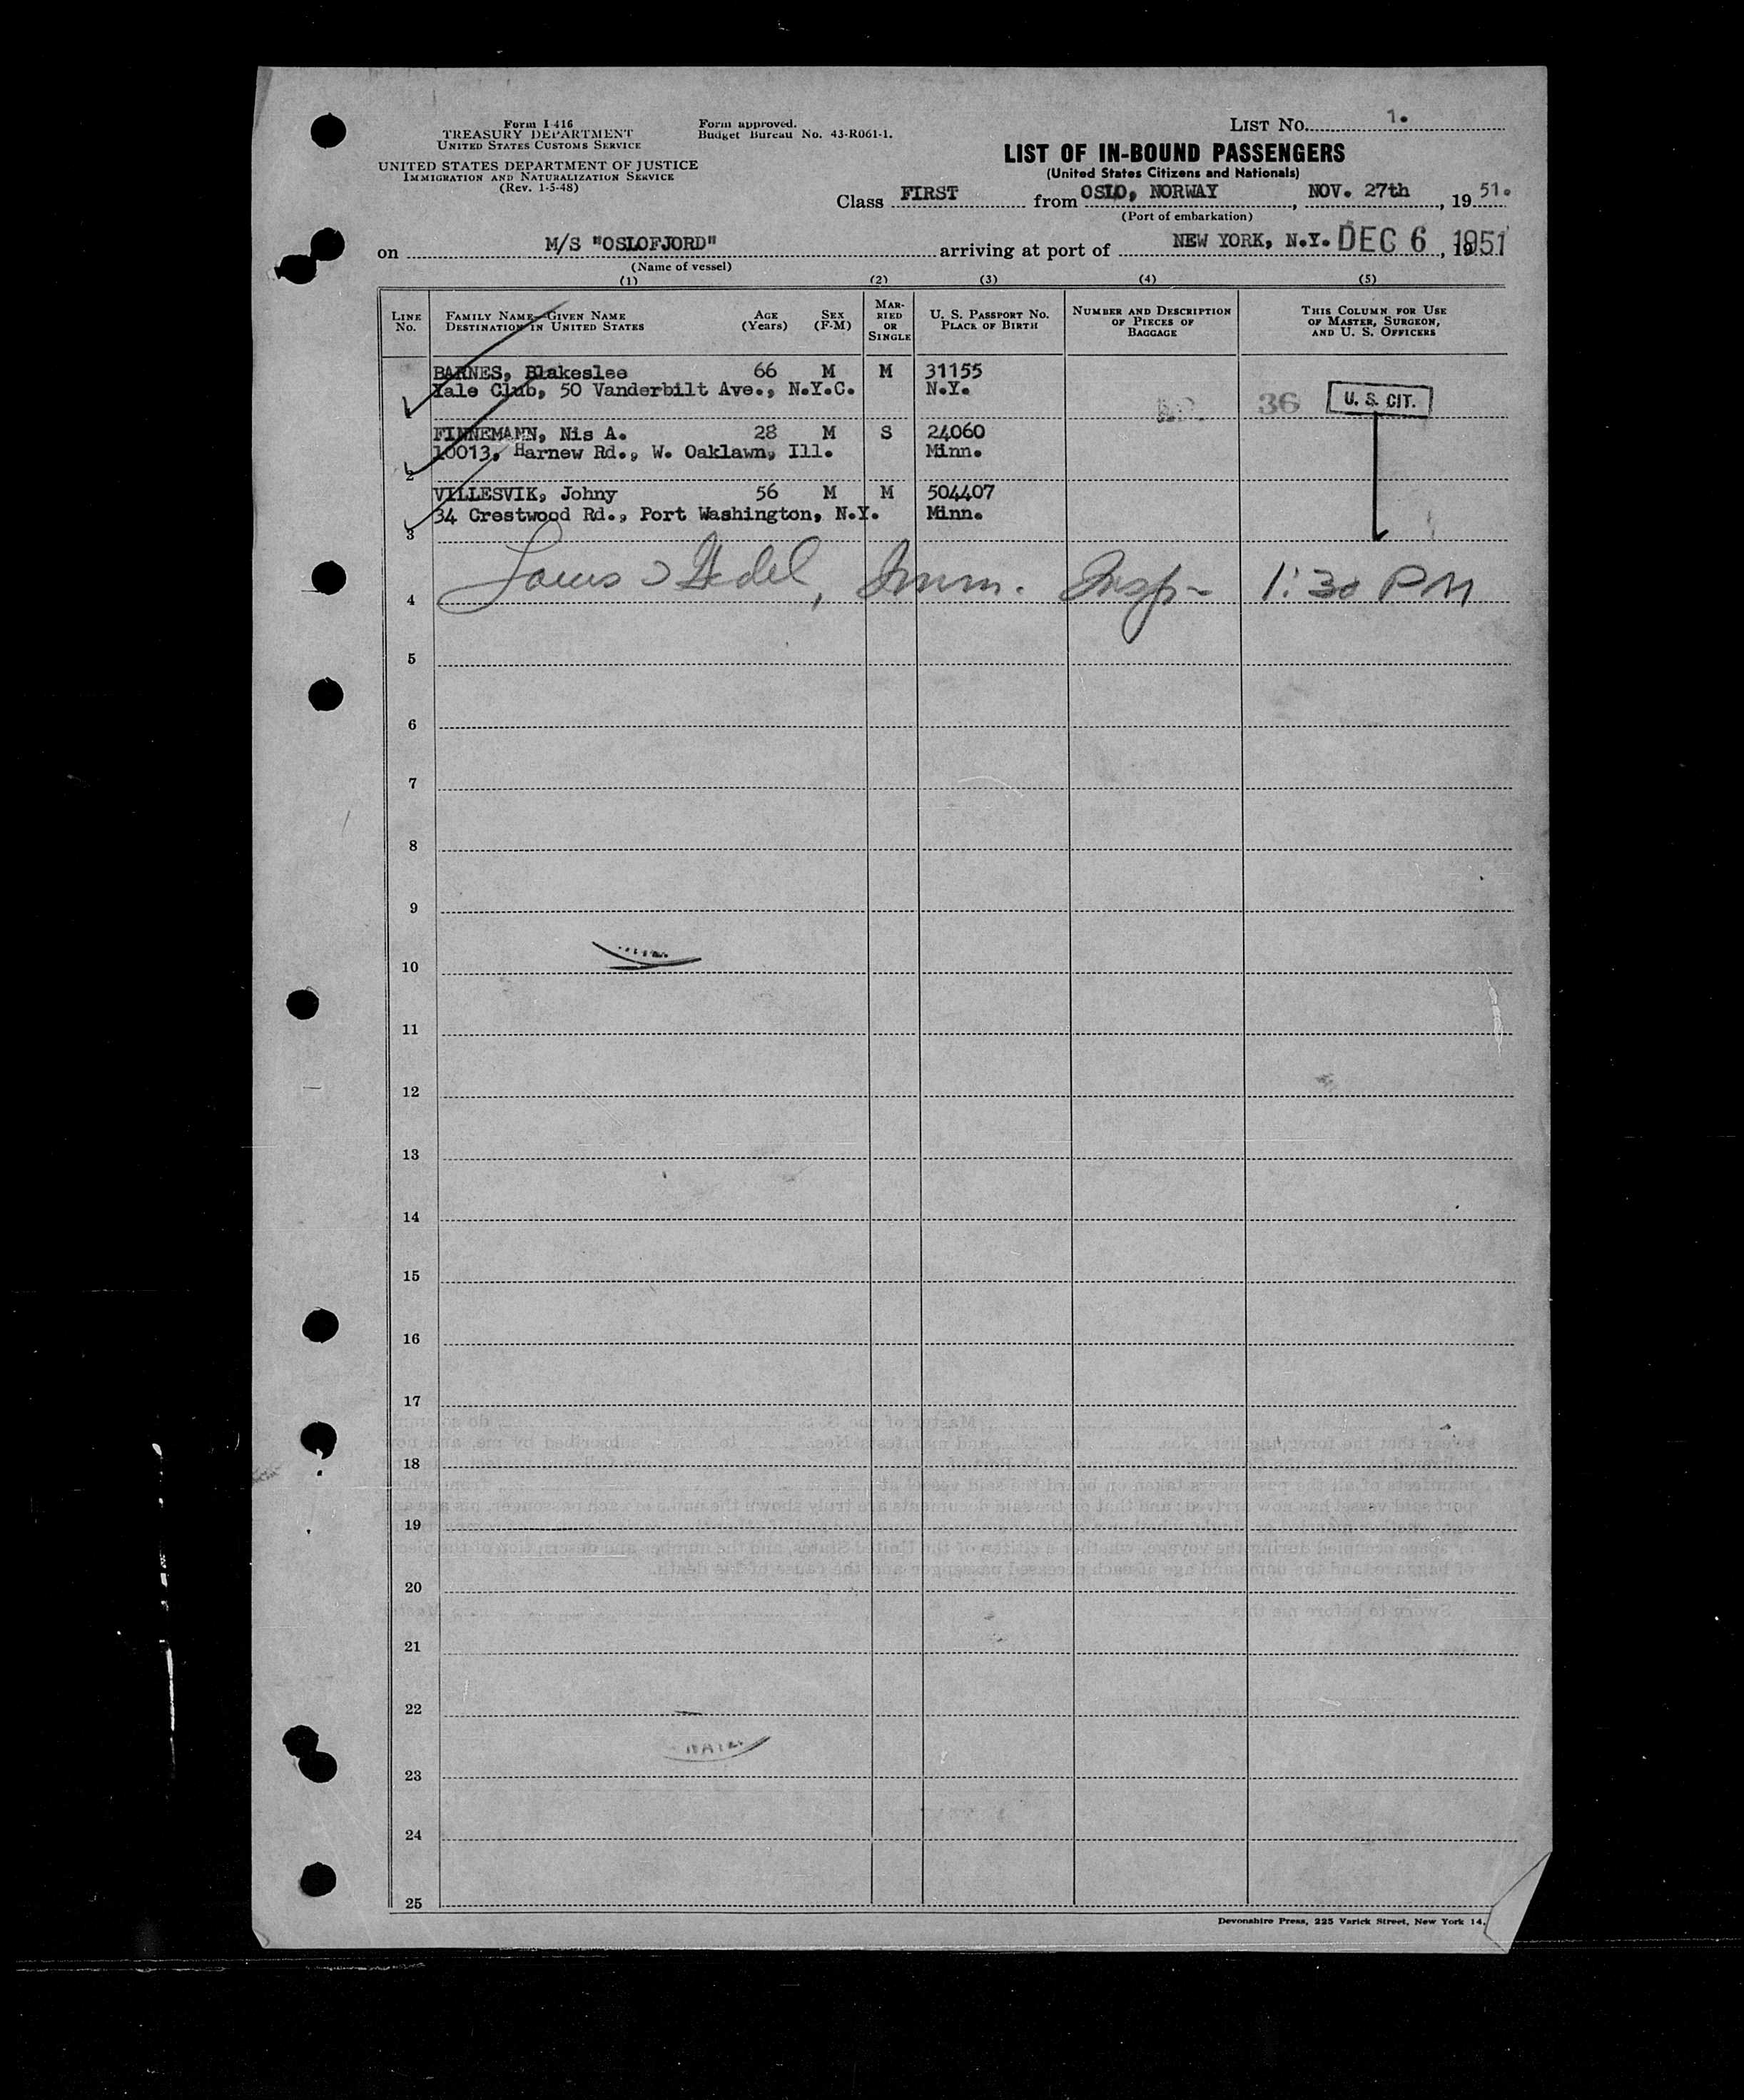 Form I 416
TREASURY DEPARTMENT
UNITED STATES CUSTOMS SERVICE
UNITED STATES DEPARTMENT OF JUSTICE
IMMIGRATION AND NATURALIZATION SERVICE
(Rev. 1-5-48)
Form approved.
Budget Bureau No. 43-R061-1.
LIST No. 1.
LIST OF IN-BOUND PASSENGERS
(United States Citizens and Nationals)
Class FIRST from OSLO, NORWAY, NOV. 27th, 1951.
(Port of embarkation)
on M/S "OSLOFJORD" arriving at port of NEW YORK, N.Y. DEC 6, 1951
(Name of vessel)
(1) (2) (3) (4) (5)
LINE No. FAMILY NAME—GIVEN NAME DESTINATION IN UNITED STATES AGE (Years) SEX (F-M) MARRIED OR SINGLE U. S. PASSPORT No. PLACE OF BIRTH NUMBER AND DESCRIPTION OF PIECES OF BAGGAGE THIS COLUMN FOR USE OF MASTER, SURGEON, AND U. S. OFFICERS
BARNES, Blakeslee 66 M M 31155
Yale Club, 50 Vanderbilt Ave., N.Y.C. N.Y. 36 U. S. CIT.
FINNEMANN, Nis A. 28 M S 24060
10013, Harnew Rd., W. Oaklawn, Ill. Minn.
2
VILLESVIK, Johny 56 M M 504407
34 Crestwood Rd., Port Washington, N.Y. Minn.
3
4 Louis Imm. Insp- 1:30 PM
5
6
7
8
9
10
11
12
13
14
15
16
17
18
19
20
21
22
23
24
25
Devonshire Press, 225 Varick Street, New York 14.